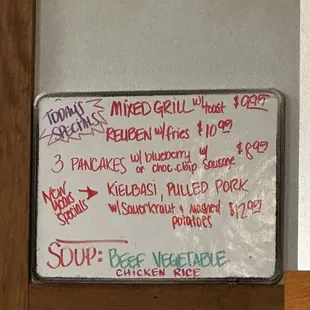 TODAY'S SPECIALS
MIXED GRILL w/ toast $9.99
REUBEN w/ fries $10.99
3 PANCAKES w/ blueberry w/ $8.99
or choc.chip Sausage
New Years Specials
KIELBASI, PULLED PORK
w/ Sauerkraut + mashed $12.99
potatoes
SOUP: BEEF VEGETABLE
CHICKEN RICE